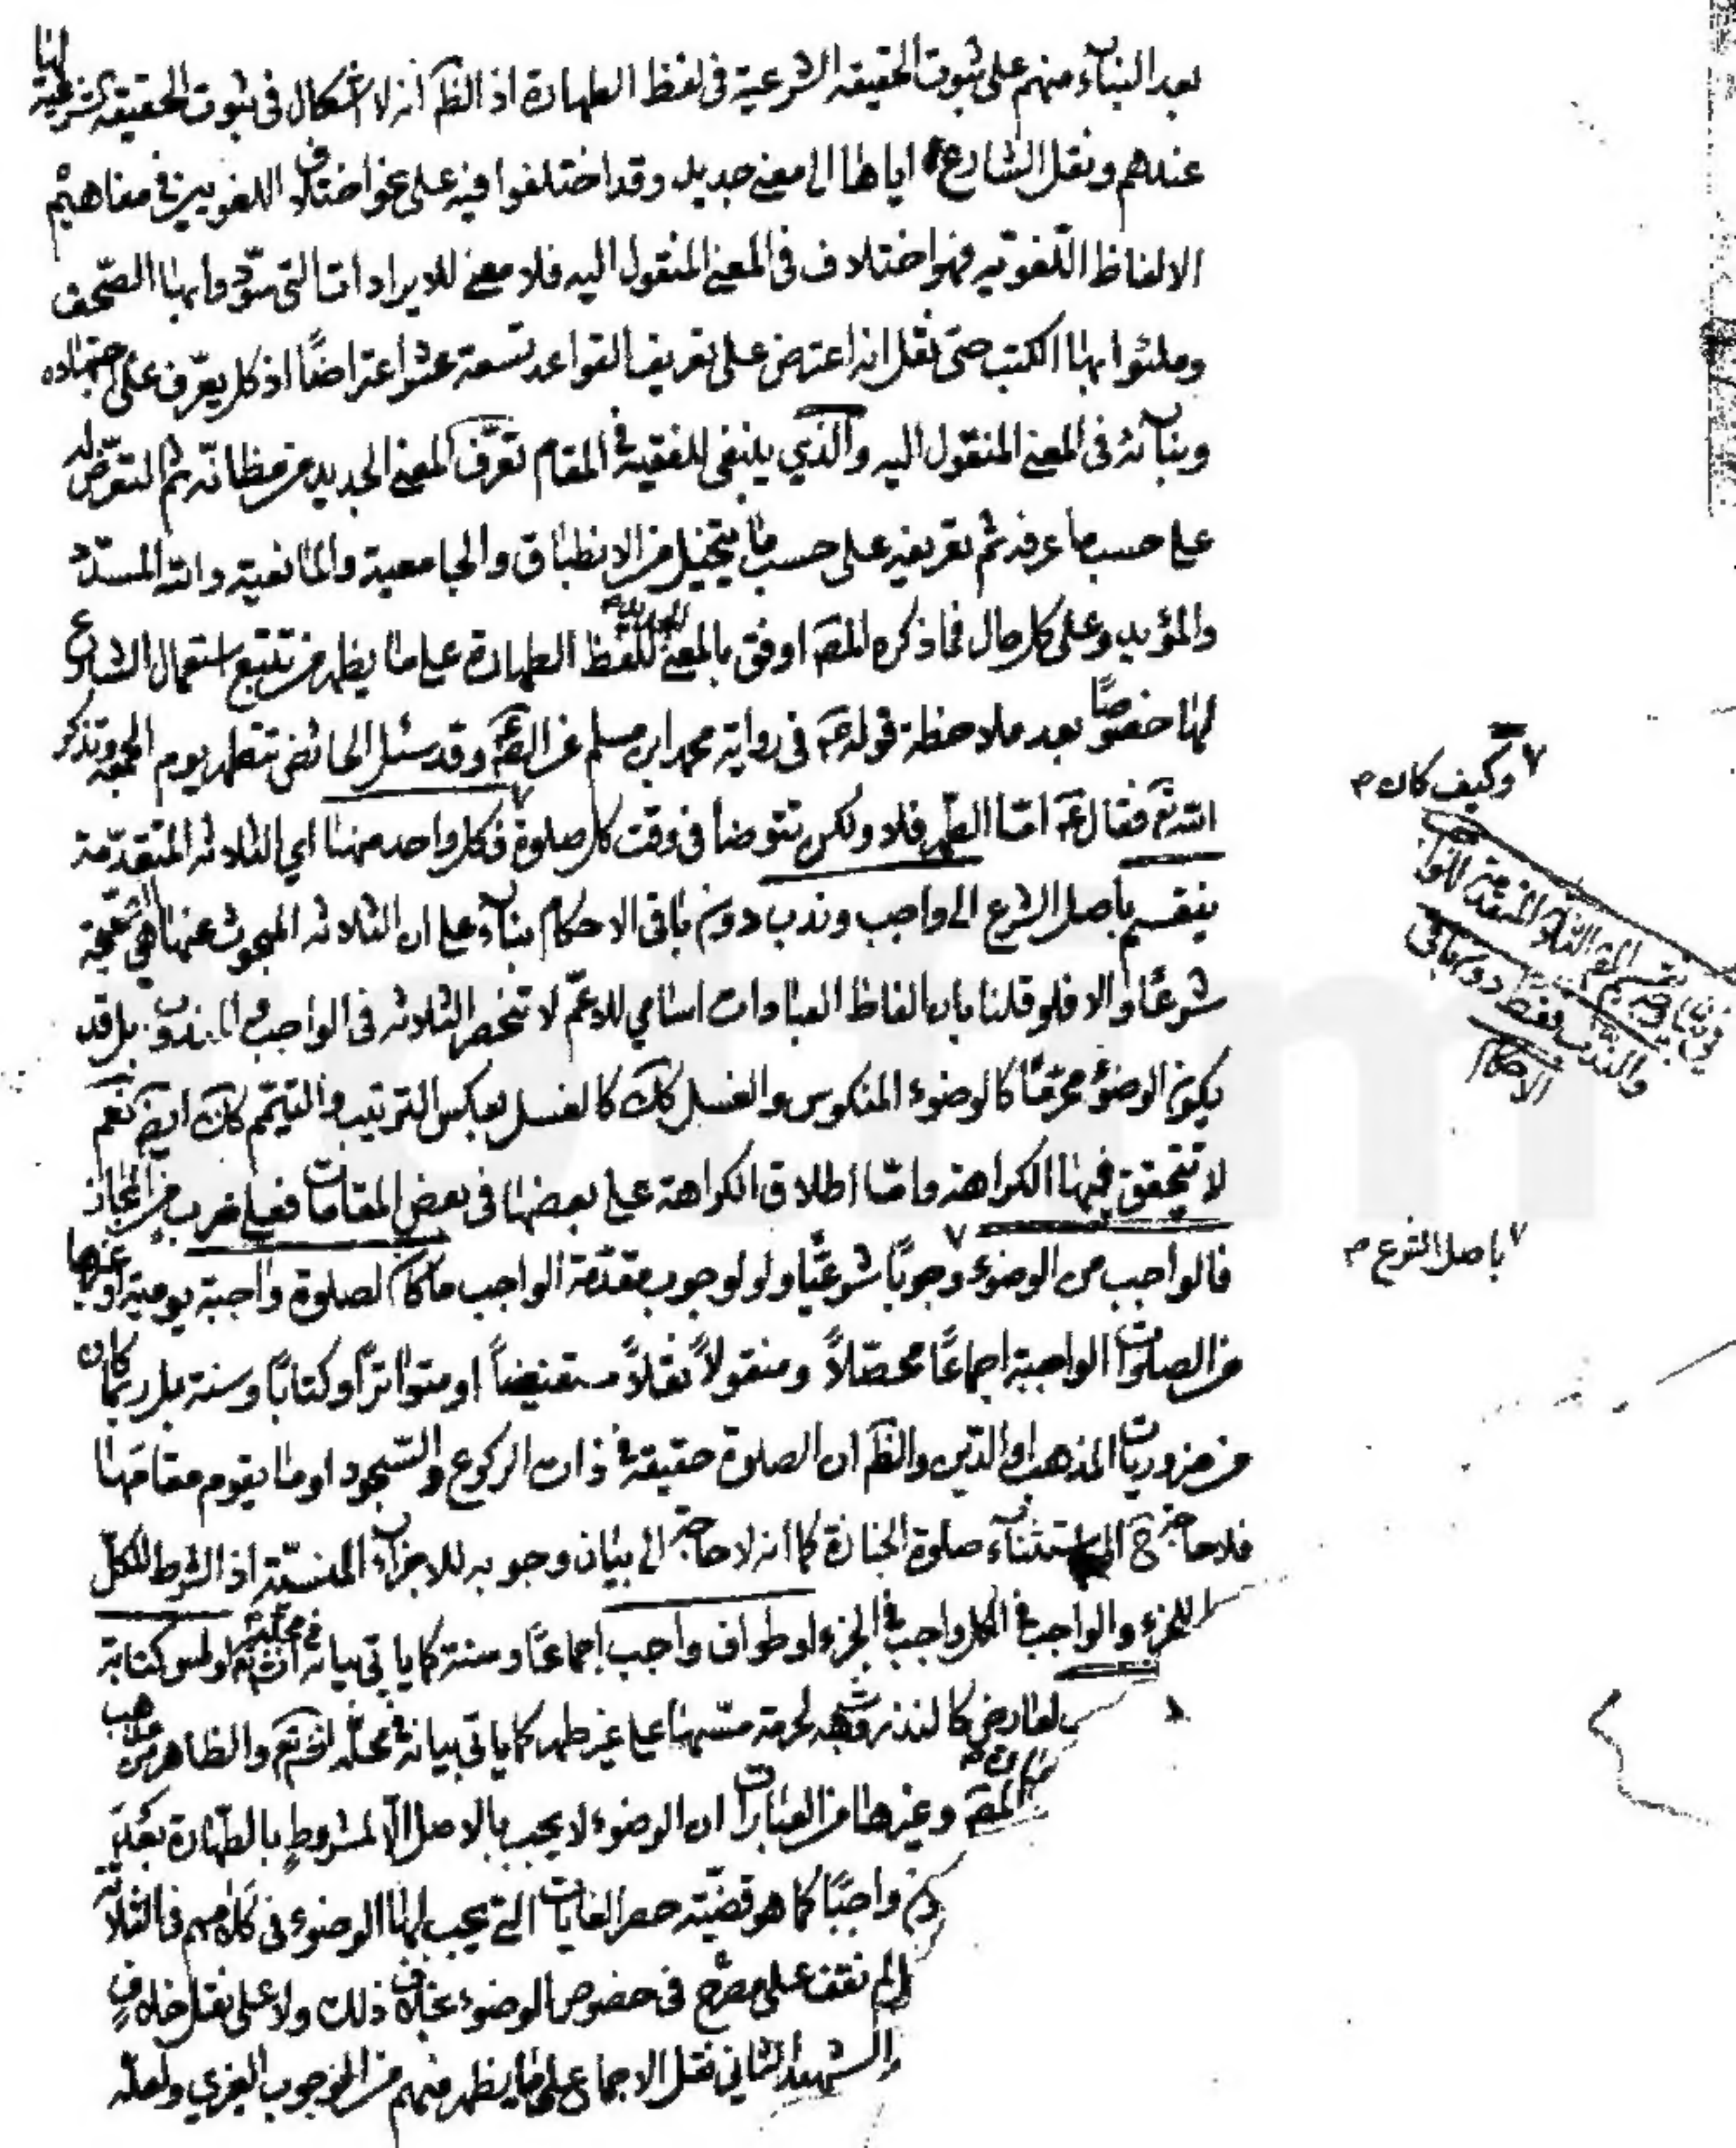 بعد البناء منهم على ثبوت الحقيقه الشرعية فى لفظ الطهارة اذ الظ انه لا اشكال فى ثبوت الحقيقه الشرعية
عندهم ونقل الشارع اياها الى معنى جديد وقد اختلفوا فيه على نحو اختلاف اللغويين فى مفاهيم
الالفاظ اللغويه فهو اختلاف فى المعنى المنقول اليه فلا معنى للايرادات التى سوّدوا بها الصحف
وملئوا بها الكتب حتى نقل انه اعترض على تعريف القواعد تسعة عشر اعتراضًا اذ كل يعرّف على اجتهاده
وبنائه فى المعنى المنقول اليه والذي ينبغى للفقيه فى المقام تعرّف المعنى الجديد من مظانّه ثم التعرّض له
على حسب ما عرفه ثم تعريفه على حسب ما يتخيل من الانطباق والجامعية والمانعية والله المسدّد
والمؤيد وعلى كل حال فما ذكره المص اوفق بالمعنى الجديد للفظ الطهارة على ما يظهر من تتبع استعمال الشارع
لها خصوصًا بعد ملاحظة قوله ع فى رواية محمد ابن مسلم عن الص ع وقد سئل الحائض تتطهر يوم الجمعة وتذكر
الله تع فقال ع امّا الطهر فلا ولكن تتوضأ فى وقت كل صلوة فكل واحد منها اي الثلاثه المتقدّمة
ينقسم باصل الشرع الى واجب وندب دون باقى الاحكام بناء على ان الثلاثه المبحوث عنها هى الصحيحة
شرعًا والا فلو قلنا بان الفاظ العبادات اسامي للاعمّ لا تنحصر الثلاثه فى الواجب و المندوب بل قد
يكون الوضوء محرّمًا كالوضوء المنكوس والغسل كك كالغسل بعكس الترتيب والتيمّم كك ايض نعم
لا تتحقق فيها الكراهة وامّا اطلاق الكراهة على بعضها فى بعض المقامات فعلى ضرب من المجاز
فالواجب من الوضوء وجوبًا شرعيًّا ولو لوجوب مقدّمة الواجب ما كان لصلوة واجبة يومية او غيرها
من الصلوات الواجبة اجماعًا محصّلاً ومنقولاً نقلاً مستفيضاً او متواترًا وكتابًا وسنة بل ربما كان
من ضروريات المذهب او الدّين والظ ان الصلوة حقيقة فى ذات الركوع والسّجود او ما يقوم مقامها
فلا حاجة ح الى استثناء صلوة الجنازة كما انه لا حاجة الى بيان وجوبه للاجزاء المنسيّة اذ الشرط للكلّ
للجزء والواجب فى الكل واجب فى الجزء او طواف واجب اجماعًا وسنة كما ياتى بيانه فى محلّه انش تع او لمس كتابة
لعارض كالنذر وشبهه لحرمة مسّها على غير طهر كما ياتى بيانه فى محلّه انش تع والظاهر من
المص وغيرها من العبارات ان الوضوء لا يجب بالاصل الا لمشروط بالطهارة بعد
واجبًا كما هو قضيّة حصر الغايات التى يجب لها الوضوء فى كلامهم فى الثلاثة
لم نقف على مصرّح فى خصوص الوضوء بخلاف ذلك ولا على نقل خلاف
الشهيد الثاني نقل الاجماع على ما يظهر منهم من الوجوب الغيري ولعلّه
وكيف كان
المتقدمة
والندب فقط دون باقى
الاحكام
باصل الشرع